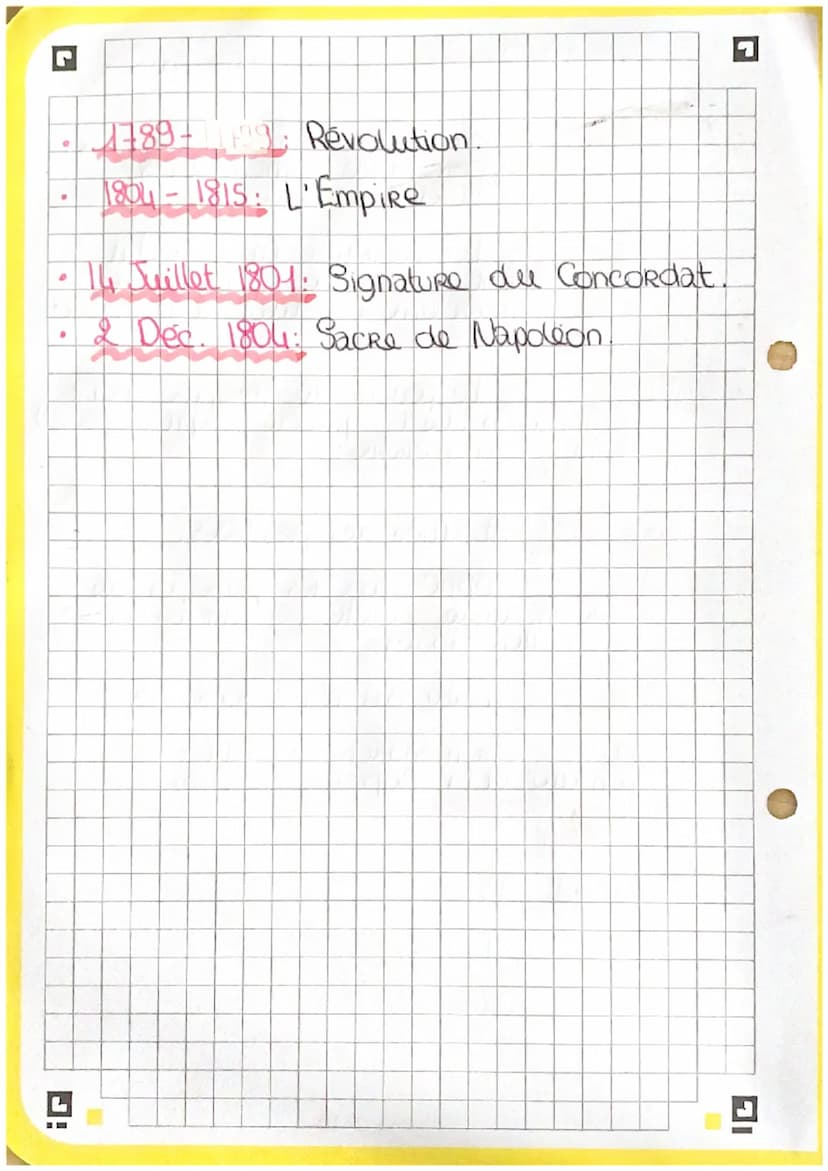 • 1789-1799: Révolution.
• 1804-1815: L'Empire
• 14 Juillet 1801: Signature du Concordat.
• 2 Déc. 1804: Sacre de Napoléon.